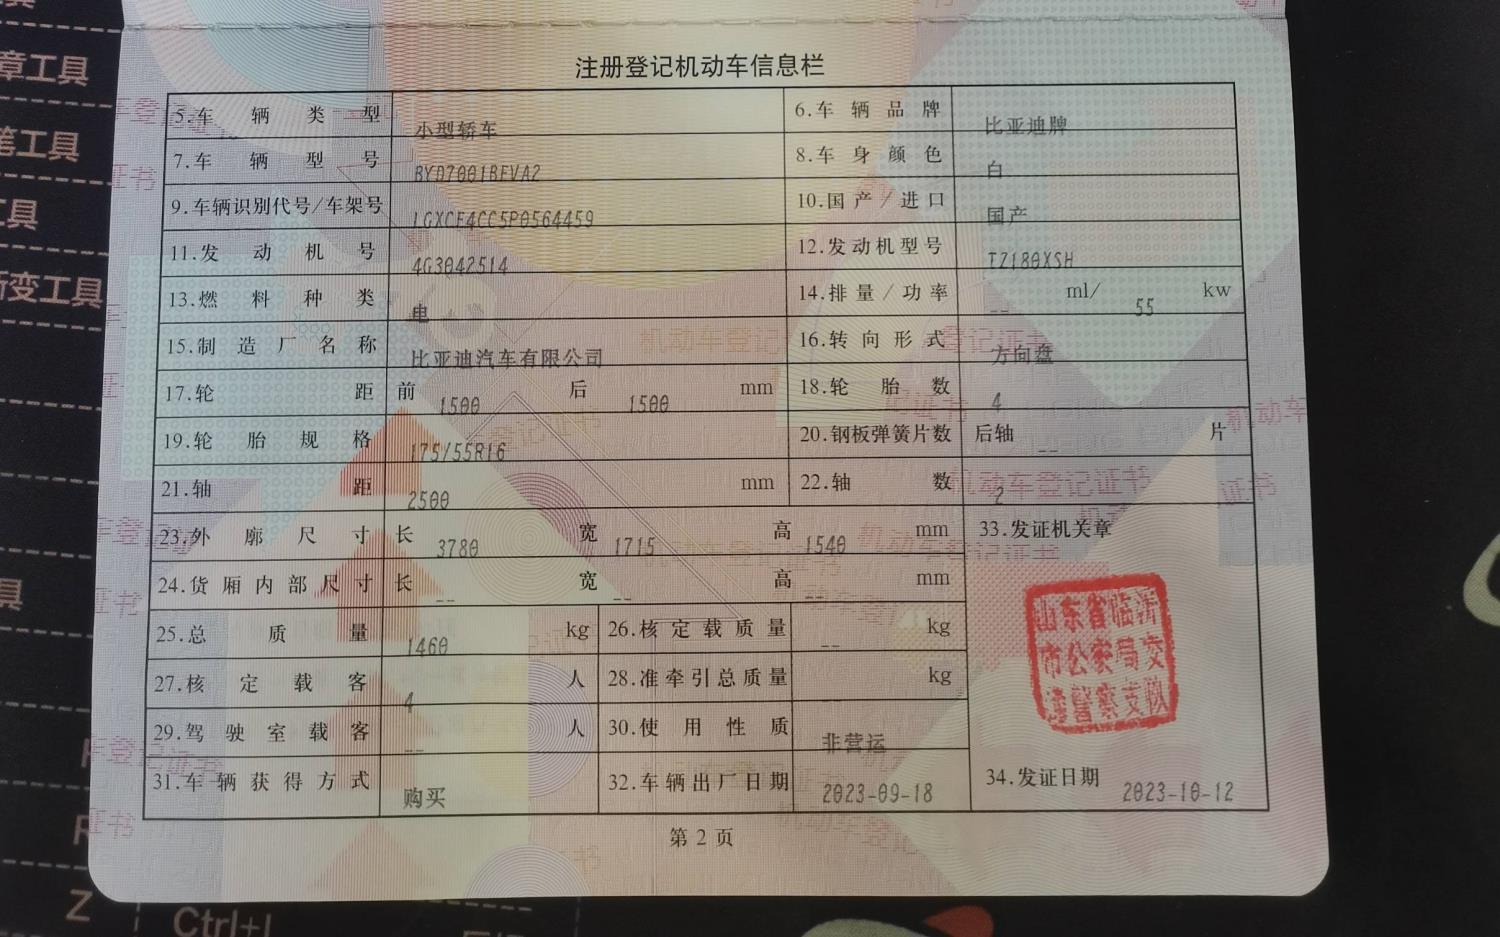 章工具
笔工具
工具
渐变工具
具
Z
Ctrl+I
注册登记机动车信息栏
5.车辆类型 小型轿车 6.车辆品牌 比亚迪牌
7.车辆型号 BYD7001BEVA2 8.车身颜色 白
9.车辆识别代号/车架号 LGXCE4CC5P0564459 10.国产/进口 国产
11.发动机号 4G3042514 12.发动机型号 TZ180XSH
13.燃料种类 电 14.排量/功率 -- ml/ 55 kw
15.制造厂名称 比亚迪汽车有限公司 16.转向形式 方向盘
17.轮距 前 1500 后 1500 mm 18.轮胎数 4
19.轮胎规格 175/55R16 20.钢板弹簧片数 后轴 -- 片
21.轴距 2500 mm 22.轴数 2
23.外廓尺寸 长 3780 宽 1715 高 1540 mm 33.发证机关章
24.货厢内部尺寸 长 -- 宽 -- 高 -- mm
25.总质量 1460 kg 26.核定载质量 -- kg
27.核定载客 4 人 28.准牵引总质量 -- kg
29.驾驶室载客 -- 人 30.使用性质 非营运
31.车辆获得方式 购买 32.车辆出厂日期 2023-09-18 34.发证日期 2023-10-12
山东省临沂
市公安局交
通警察支队
第2页